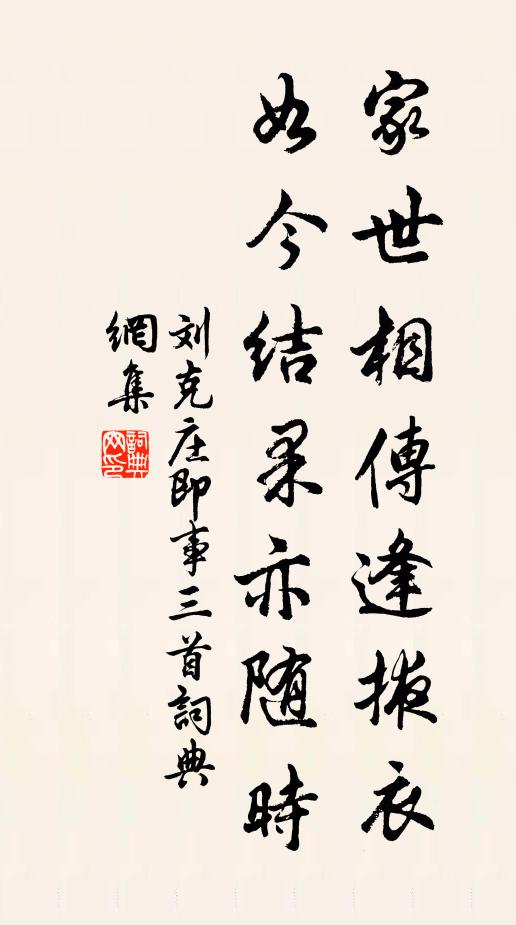 家世相傳逢掖衣
如今結果亦随時
刘克庄即事三首詞典
網集
詞典网印